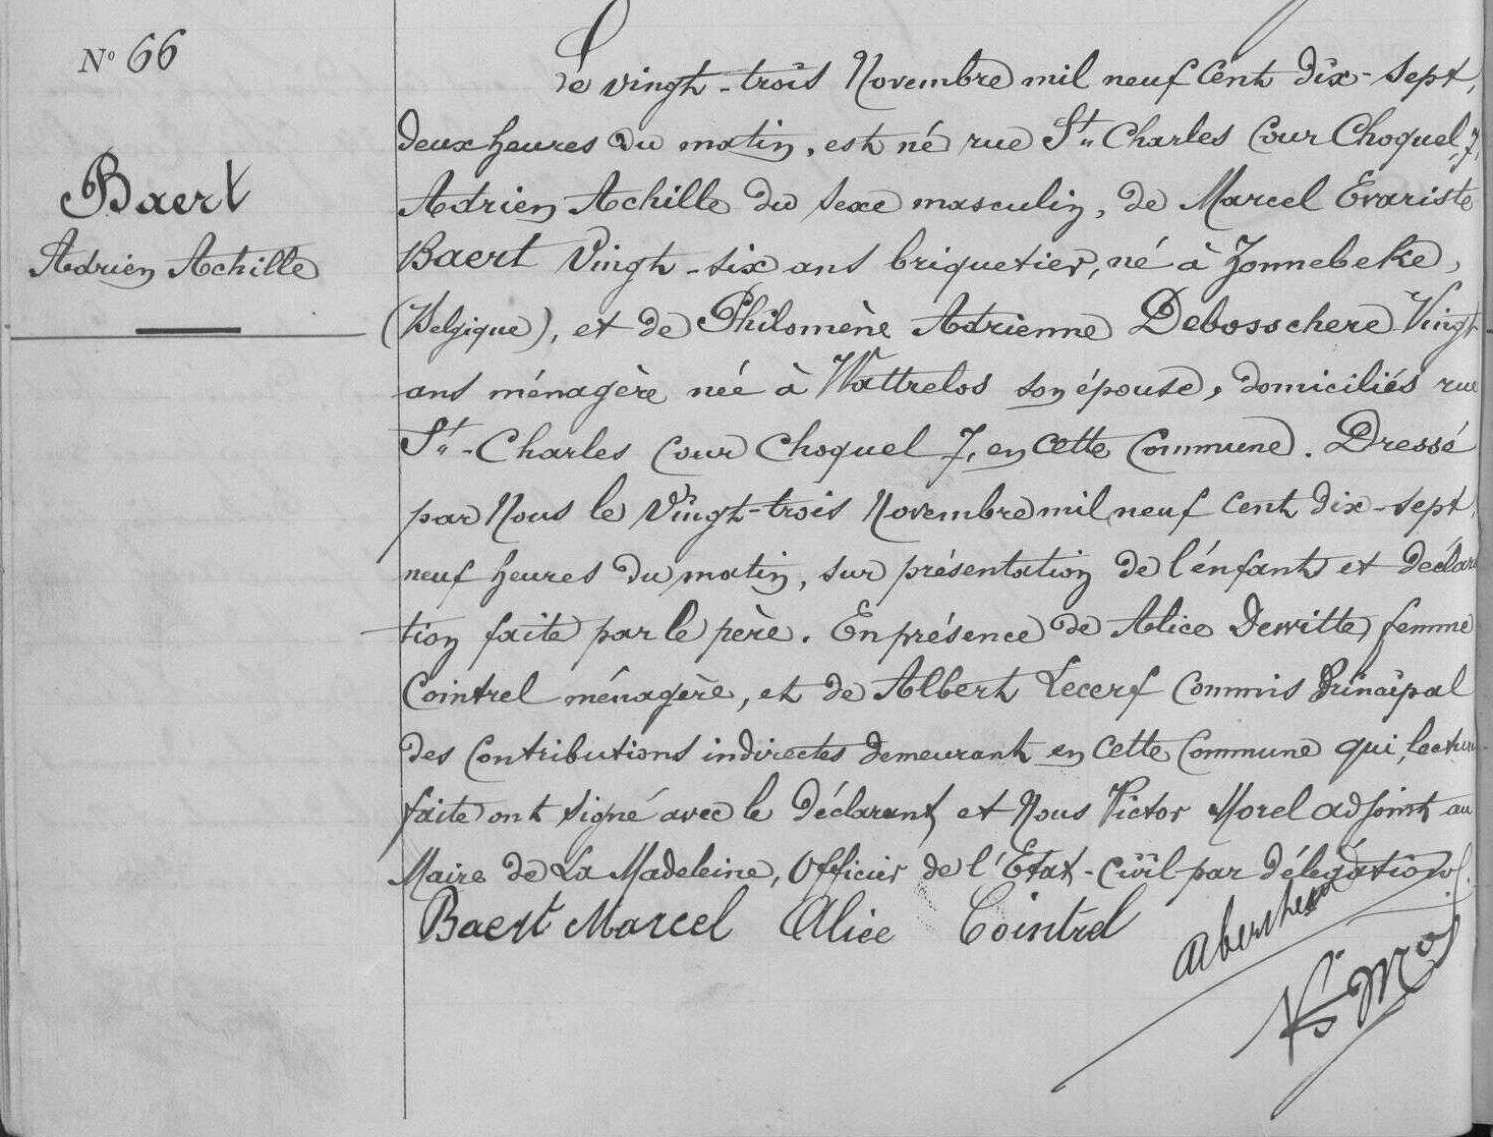 N° 66
Baert
Adrien Achille
Le vingt-trois Novembre mil neuf Cent dix-sept,
deux heures du matin, est né rue St. Charles Cour Choquel, 7,
Adrien Achille du sexe masculin, de Marcel Evariste
Baert Vingt-six ans briquetier, né à Zonnebeke,
(Belgique), et de Philomène Adrienne Debosschere Vingt
ans ménagère née à Wattrelos son épouse, domiciliés rue
St.-Charles Cour Choquel 7, en cette Commune. Dressé
par Nous le Vingt-trois Novembre mil neuf cent dix-sept,
neuf heures du matin, sur présentation de l'énfant et déclara
tion faite par le père. En présence de Alice Dewitte, femme
Cointrel ménagère, et de Albert Lecerf Commis Principal
des Contributions indirectes demeurant en cette Commune qui, lecture
faite ont signé avec le déclarant et Nous Victor Morel adjoint au
Maire de La Madeleine, Officier de l'Etat-Civil par délégation.
Baert Marcel Alice Cointrel